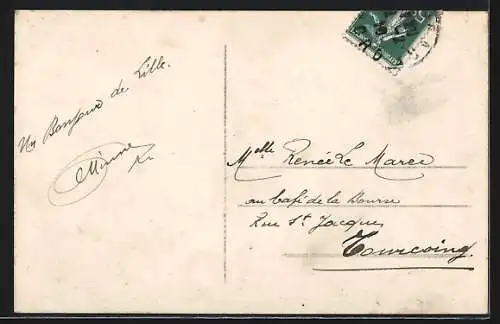 Un Bonjour de Lille.
Minne
Melle Renée Le Marec
au Café de la Bourse
Rue St Jacques
Tourcoing